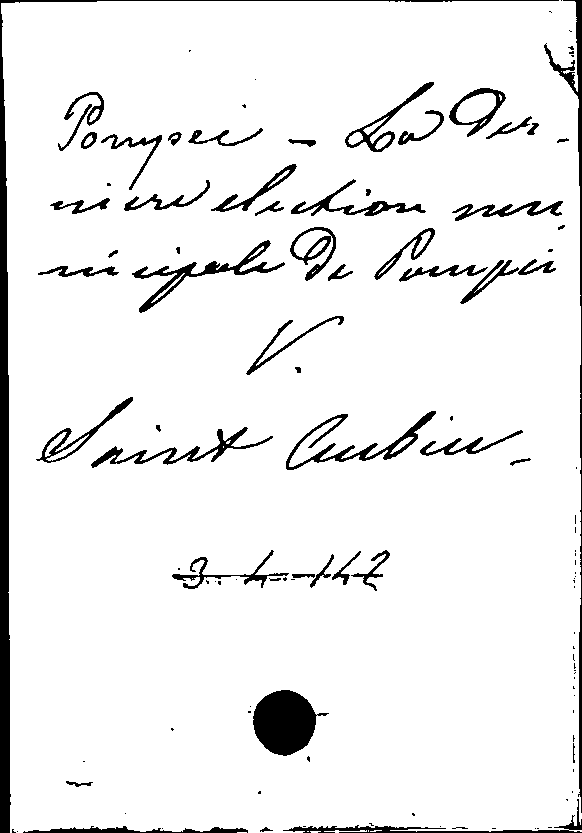 Pompei - La Der-
niere election mu
nicipale De Pompei
V.
Saint Aubin -
3. 4 - 142